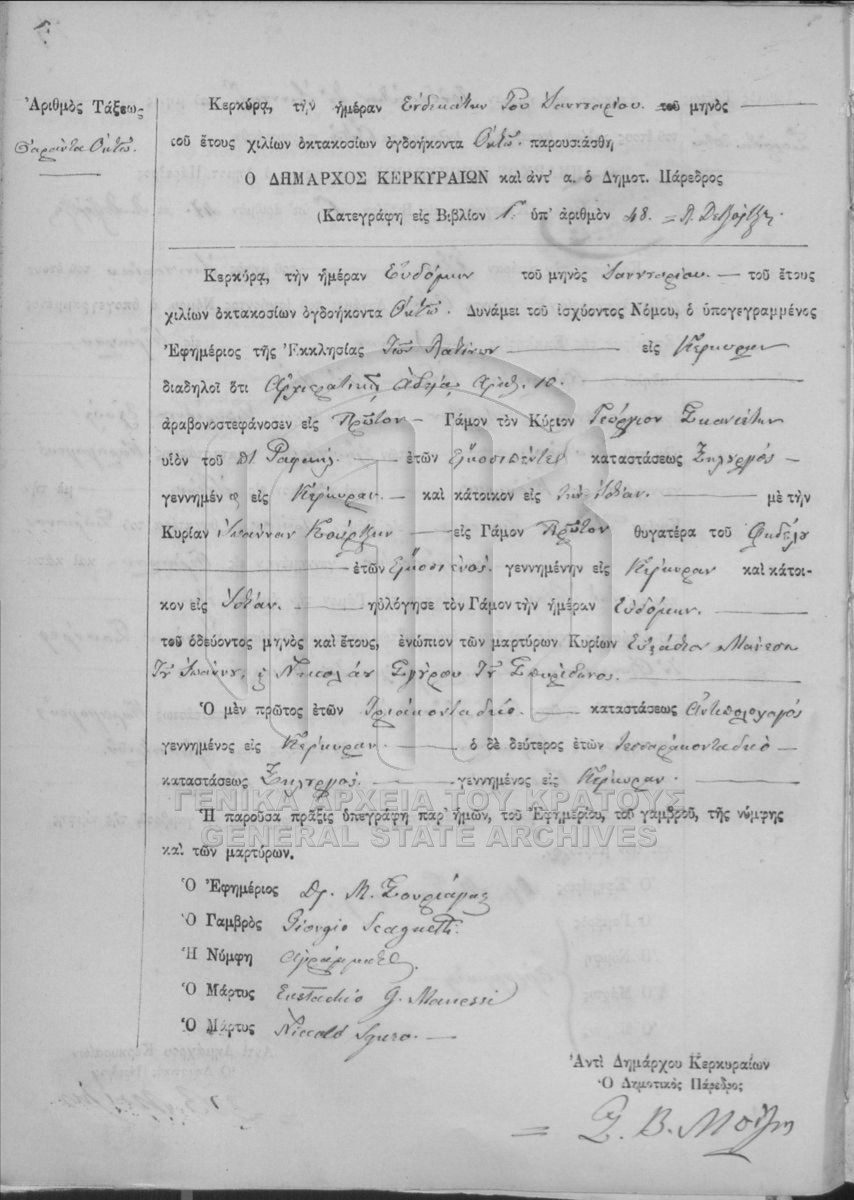 Ἀριθμὸς Τάξεως
Σαράντα Ὀκτώ.
Κερκύρᾳ, τὴν ἡμέραν Ἑνδεκάτην Τοῦ Ἰαννουαρίου. τοῦ μηνὸς
τοῦ ἔτους χιλίων ὀκτακοσίων ὀγδοήκοντα Ὀκτώ. παρουσιάσθη
Ο ΔΗΜΑΡΧΟΣ ΚΕΡΚΥΡΑΙΩΝ καὶ ἀντ' α. ὁ Δημοτ. Πάρεδρος
(Κατεγράφη εἰς Βιβλίον Γ. ὑπ' ἀριθμὸν 48.
Κερκύρᾳ, τὴν ἡμέραν Ἑυδόμην τοῦ μηνὸς Ἰαννουαρίου. τοῦ ἔτους
χιλίων ὀκτακοσίων ὀγδοήκοντα Ὀκτώ. Δυνάμει τοῦ ἰσχύοντος Νόμου, ὁ ὑπογεγραμμένος
Ἐφημέριος τῆς Ἐκκλησίας Τῶν Λατίνων εἰς Κέρκυραν
διαδηλοῖ ὅτι Ἀρχιερατικῇ Ἀδείᾳ Ἀριθ. 10.
ἀραβονοστεφάνοσεν εἰς Πρῶτον Γάμον τὸν Κύριον Γεόργιον Σκανιέτην
υἱὸν τοῦ Ραφαήλ. ἐτῶν εἴκοσιπέντε καταστάσεως Ξηλυργός
γεννημένο εἰς Κέρκυραν. καὶ κάτοικον εἰς τὴν Ἰδίαν. μὲ τὴν
Κυρίαν Ἰωάνναν Κούρκην εἰς Γάμον Πρῶτον θυγατέρα τοῦ Φιδέλη
ἐτῶν εἴκοσιενός. γεννημένην εἰς Κέρκυραν καὶ κάτοι-
κον εἰς Ἰδίαν. ηὐλόγησε τὸν Γάμον τὴν ἡμέραν Ἑυδόμην.
τοῦ ὁδεύοντος μηνὸς καὶ ἔτους, ἐνώπιον τῶν μαρτύρων Κυρίων Εὐστάθιον Μάνεση
Τοῦ Ἰωάννου, Νικολάν Σγύρου Τοῦ Σπυρίδονος.
Ὁ μὲν πρῶτος ἐτῶν Τριάκονταδύο. καταστάσεως Ἀντιπλοίαρχος
γεννημένος εἰς Κέρκυραν. ὁ δὲ δεύτερος ἐτῶν τεσσαράκονταδυό
καταστάσεως Ξηλυργός. γεννημένος εἰς Κέρκυραν.
ΓΕΝΙΚΑ ΑΡΧΕΙΑ ΤΟΥ ΚΡΑΤΟΥΣ
Ἡ παροῦσα πρᾶξις ὑπεγράφη παρ' ἡμῶν, τοῦ Ἐφημερίου, τοῦ γαμβροῦ, τῆς νύμφης
GENERAL STATE ARCHIVES
καὶ τῶν μαρτύρων.
Ὁ Ἐφημέριος Δρ. Μ.
Ὁ Γαμβρὸς Giorgio Scagnetti
Ἡ Νύμφη ἀγράμματος
Ὁ Μάρτυς Eustachio G. Manessi
Ὁ Μάρτυς Niccolò Sguro.
Ἀντὶ Δημάρχου Κερκυραίων
Ὁ Δημοτικὸς Πάρεδρος